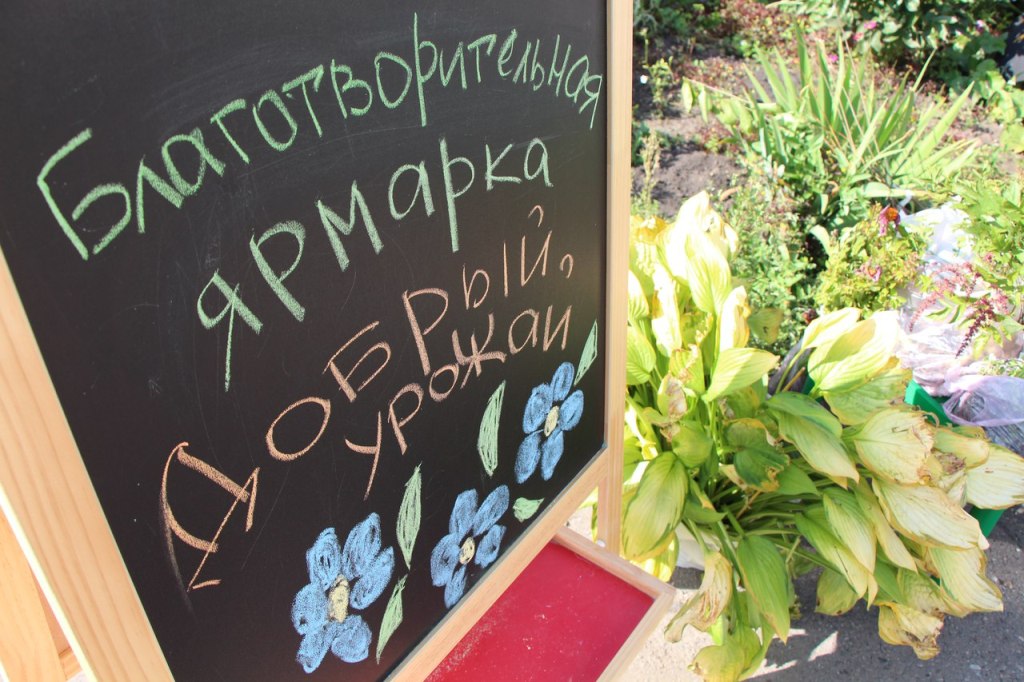 Благотворительная
ярмарка
Добрый,
урожай